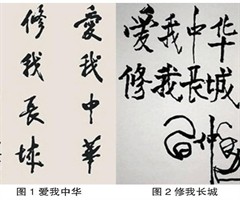 愛我中華
修我長城
爱我中华
修我长城
图 1 爱我中华
图 2 修我长城